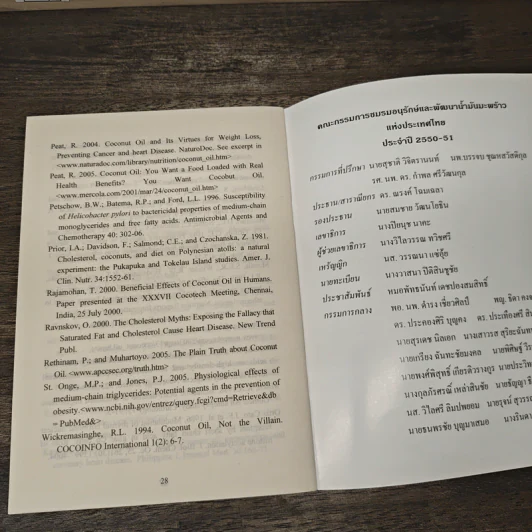 Peat, R. 2004. Coconut Oil and Its Virtues for Weight Loss,
Preventing Cancer and heart Disease. NaturoDoc. See excerpt in
<www.naturodoc.com/library/nutrition/coconut_oil.htm>
Peat, R. 2005. Coconut Oil: You Want a Food Loaded with Real
Health Benefits? You Want Cocobut Oil.
<www.mercola.com/2001/mar/24/coconut_oil.htm>
Petschow, B.W.; Batema, R.P.; and Ford, L.L. 1996. Susceptibility
of Helicobacter pylori to bactericidal properties of medium-chain
monoglycerides and free fatty acids. Antimicrobial Agents and
Chemotherapy 40: 302-06.
Prior, I.A.; Davidson, F.; Salmond, C.E.; and Czochanska, Z. 1981.
Cholesterol, coconuts, and diet on Polynesian atolls: a natural
experiment: the Pukapuka and Tokelau Island studies. Amer. J.
Clin. Nutr. 34:1552-61.
Rajamohan, T. 2000. Beneficial Effects of Coconut Oil in Humans.
Paper presented at the XXXVII Cocotech Meeting, Chennai,
India, 25 July 2000.
Ravnskov, O. 2000. The Cholesterol Myths: Exposing the Fallacy that
Saturated Fat and Cholesterol Cause Heart Disease. New Trend
Publ.
Rethinam, P.; and Muhartoyo. 2005. The Plain Truth about Coconut
Oil. <www.apccsec.org/truth.htm>
St. Onge, M.P.; and Jones, P.J. 2005. Physiological effects of
medium-chain triglycerides: Potential agents in the prevention of
obesity.<www.ncbi.nih.gov/entrez/query.fcgi?cmd=Retrieve&db
= PubMed&>
Wickremasinghe, R.L. 1994. Coconut Oil, Not the Villain.
COCOINFO International 1(2): 6-7.
28
คณะกรรมการชมรมอนุรักษ์และพัฒนาน้ำมันมะพร้าว
แห่งประเทศไทย
ประจำปี 2550-51
กรรมการที่ปรึกษา นายสุชาติ วิจิตรานนท์ นพ.บรรจบ ชุณหสวัสดิกุล
รศ. นพ. ดร. กำพล ศรีวัฒนกุล
ประธาน/สาราณียกร ดร. ณรงค์ โฉมเฉลา
รองประธาน นายสมชาย วัฒนโยธิน
เลขาธิการ นางปิยนุช นาคะ
ผู้ช่วยเลขาธิการ นางวิไลวรรณ ทวิชศรี
เหรัญญิก นส. วรรณนา แซ่อุ้ย
นายทะเบียน นางวาสนา ปิติสินชูชัย
ประชาสัมพันธ์ หมอพัทธนันท์ เดชปองสมสิทธิ์
กรรมการกลาง พอ. นพ. ดำรง เชี่ยวศิลป์ พญ.
ดร. ประคองศิริ บุญคง ดร. ประเทืองศรี
นายสุรเดช นิลเอก นางเสาวรส
นายเกรียง ฉันทะชัยมงคล นายพิสิษฐ์
นายพงศ์พิสุทธิ์
นางกุลภัรศรณ์ เหล่าสินชัย
นส. วิไลศรี ลิมปพยอม นายรุจน์
นายธนพรชัย บุญมาเสมอ